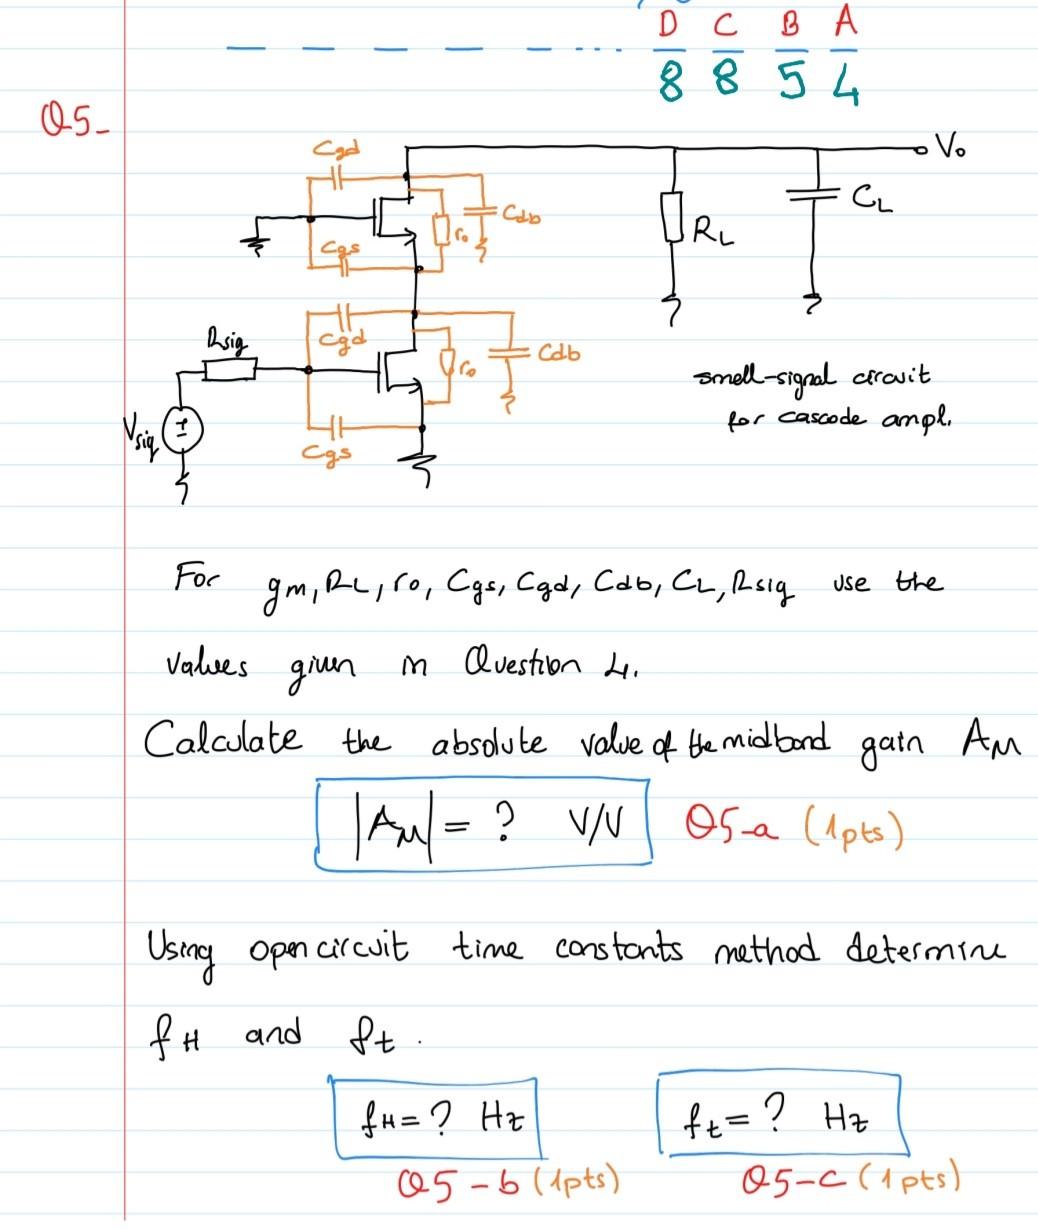 D C B A
8 8 5 4
Q5-
Cgd
Vo
Cdb
ro
CL
RL
Cgs
Rsig
Cgd
ro
Cdb
Vsig
Cgs
small-signal circuit
for cascode ampl.
For gm, RL, ro, Cgs, Cgd, Cdb, CL, Rsig use the
values given in Question 4.
Calculate the absolute value of the midband gain AM
|AM| = ? V/V Q5-a (1pts)
Using open circuit time constants method determine
fH and ft.
fH = ? Hz ft = ? Hz
Q5-b (1pts) Q5-c (1pts)